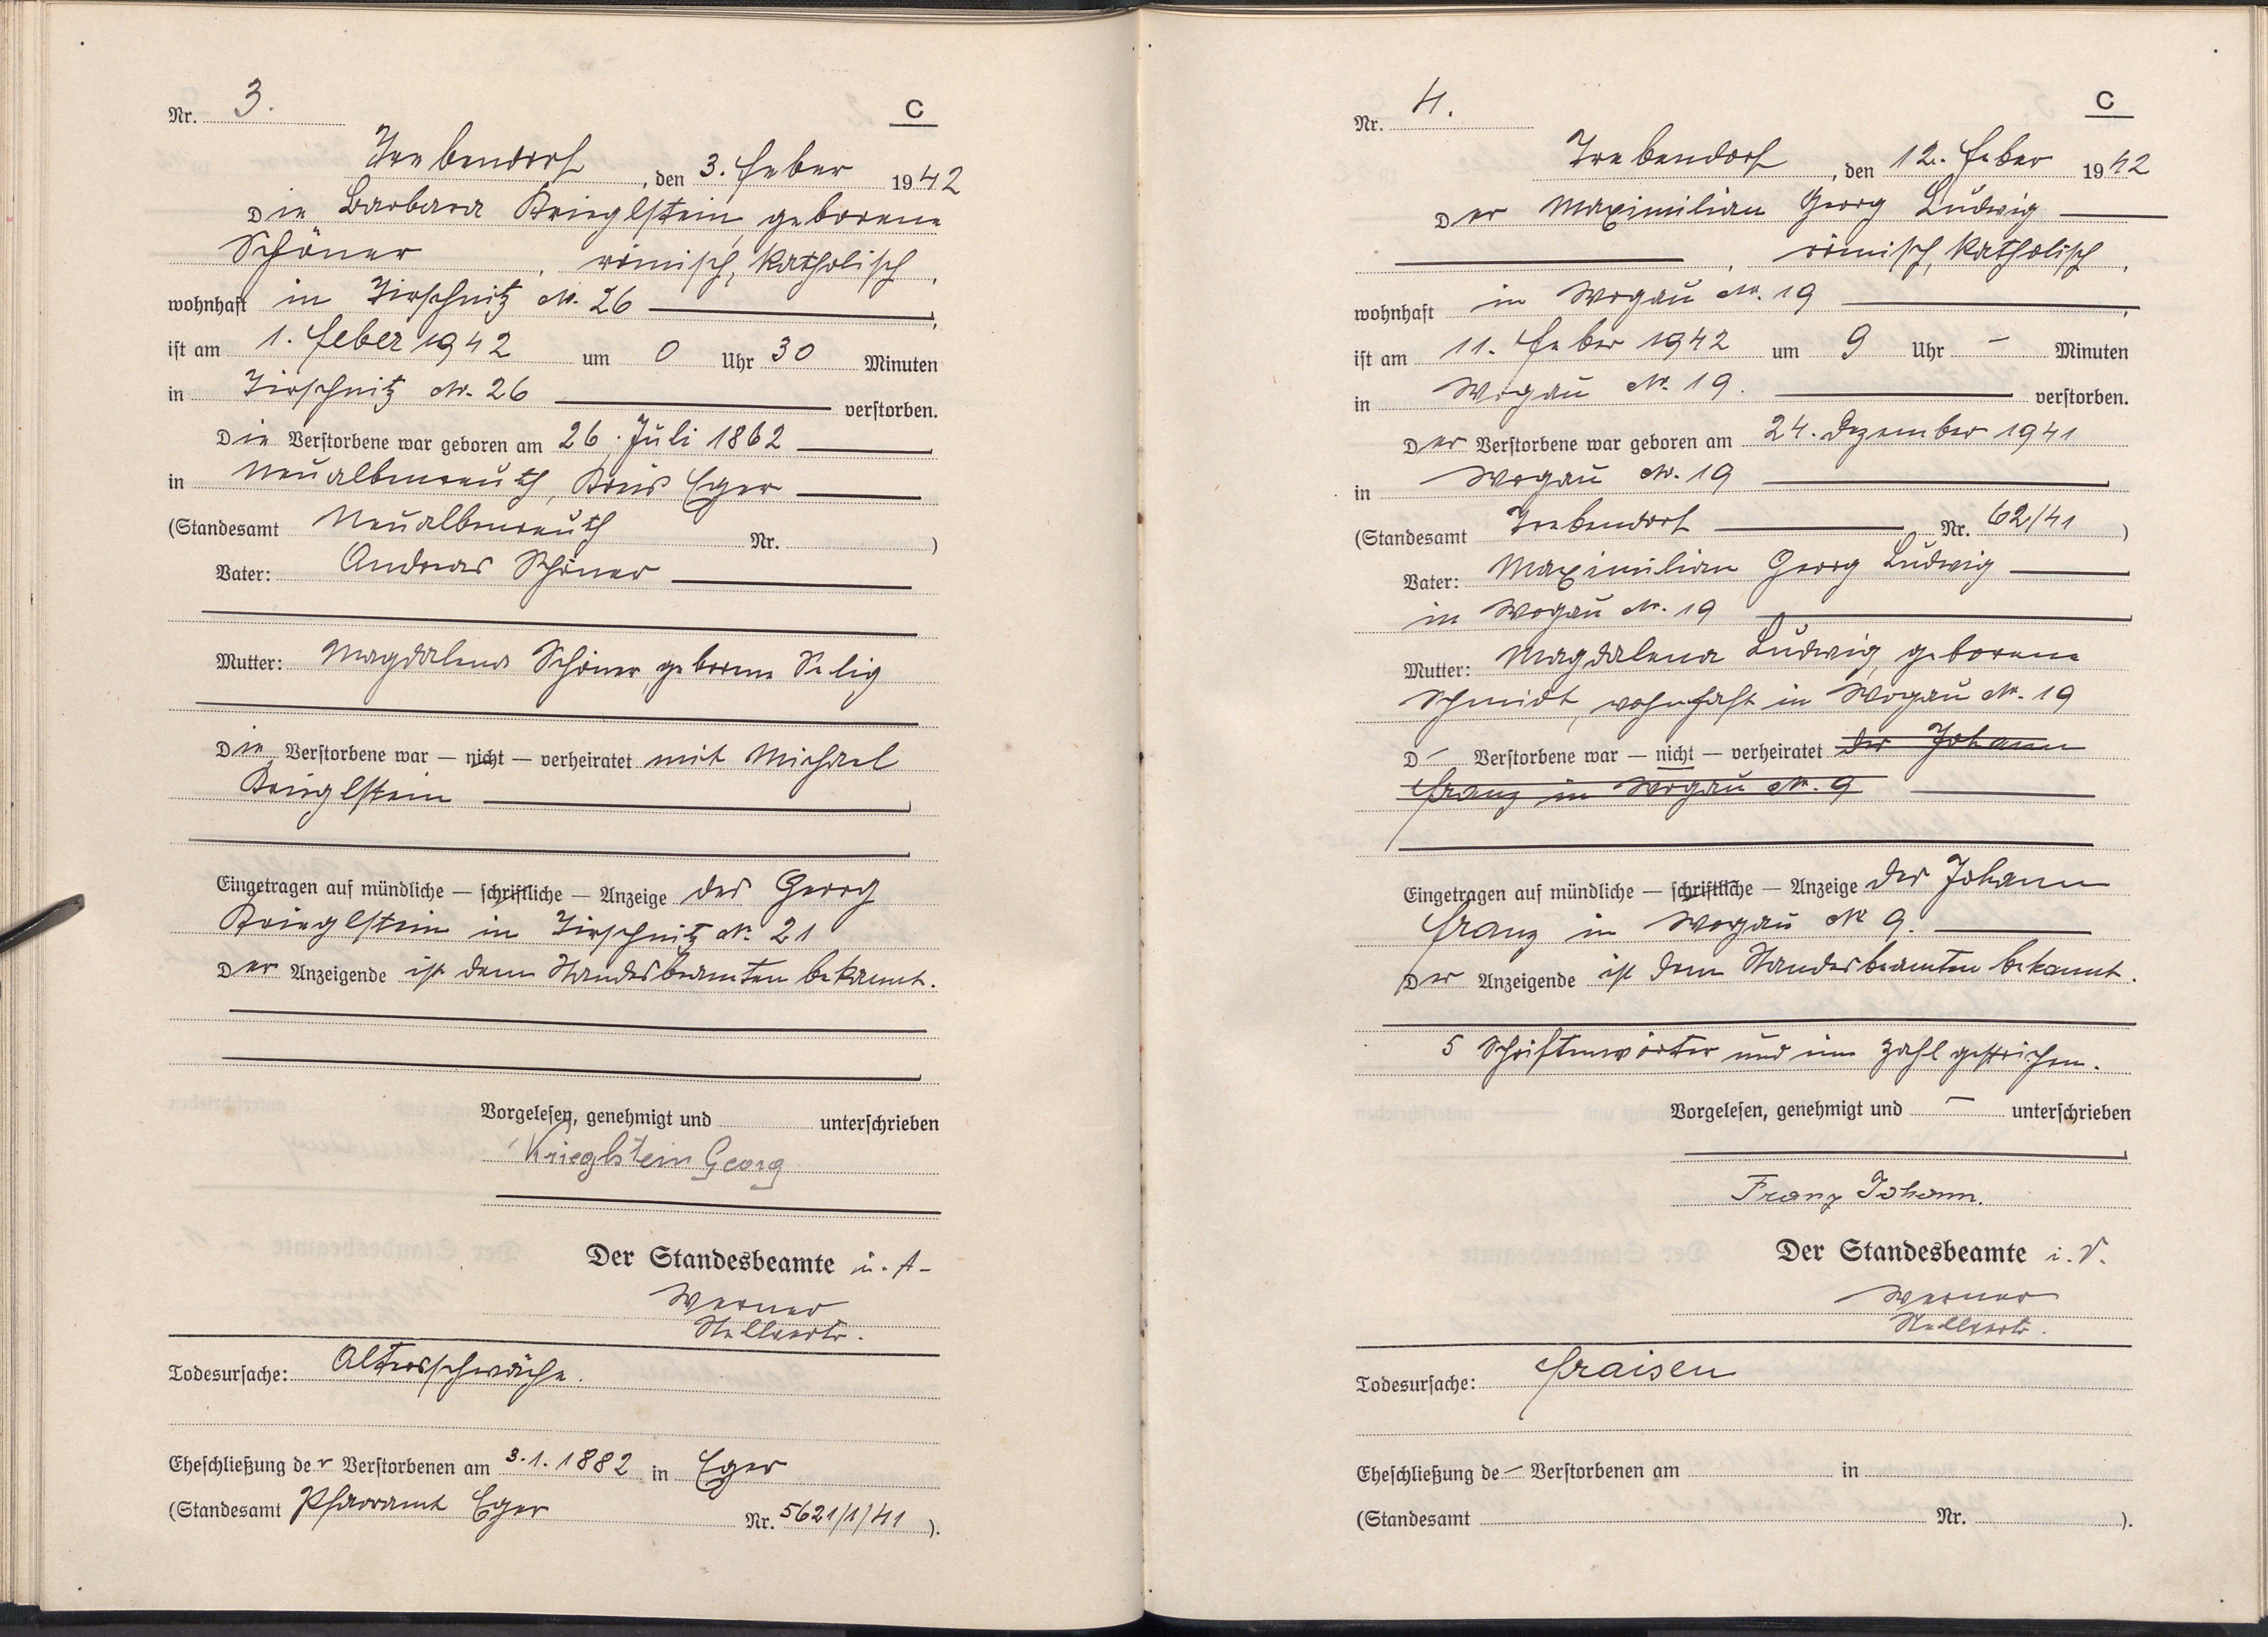 Nr. 3.
C
Trebendorf, den 3. Feber 1942
Die Barbara Krieglstein, geborene
Schöner, römisch, katholisch,
wohnhaft in Tirschnitz Nr. 26
ist am 1. Feber 1942 um 0 Uhr 30 Minuten
in Tirschnitz Nr. 26 verstorben.
Die Verstorbene war geboren am 26. Juli 1862
in Neualbenreuth, Kreis Eger
(Standesamt Neualbenreuth Nr. )
Vater: Andreas Schöner
Mutter: Magdalena Schöner, geborene Selig
Die Verstorbene war — nicht — verheiratet mit Michael
Krieglstein
Eingetragen auf mündliche — schriftliche — Anzeige des Georg
Krieglstein in Tirschnitz Nr. 21
Der Anzeigende ist dem Standesbeamten bekannt.
Vorgelesen, genehmigt und unterschrieben
Krieglstein Georg
Der Standesbeamte
Werner
Stellvertr.
Todesursache: Altersschwäche.
Eheschließung der Verstorbenen am 3.1.1882 in Eger
(Standesamt Pfarramt Eger Nr. 5621/1/41 ).
Nr. 4.
C
Trebendorf, den 12. Feber 1942
Der Maximilian Georg Ludwig
, römisch, katholisch,
wohnhaft in Wogau Nr. 19
ist am 11. Feber 1942 um 9 Uhr – Minuten
in Wogau Nr. 19. verstorben.
Der Verstorbene war geboren am 24. Dezember 1941
in Wogau Nr. 19
(Standesamt Trebendorf Nr. 62/41 )
Vater: Maximilian Georg Ludwig
in Wogau Nr. 19
Mutter: Magdalena Ludwig, geborene
Schmidt, wohnhaft in Wogau Nr. 19
D– Verstorbene war — nicht — verheiratet des Johann
Franz in Wogau Nr. 9
Eingetragen auf mündliche — schriftliche — Anzeige des Johann
Franz in Wogau Nr. 9.
Der Anzeigende ist dem Standesbeamten bekannt.
5 Schriftenwörter und eine Zahl gestrichen.
Vorgelesen, genehmigt und – unterschrieben
Franz Johann.
Der Standesbeamte i. V.
Werner
Stellvertr.
Todesursache: Fraisen
Eheschließung de– Verstorbenen am in
(Standesamt Nr. ).